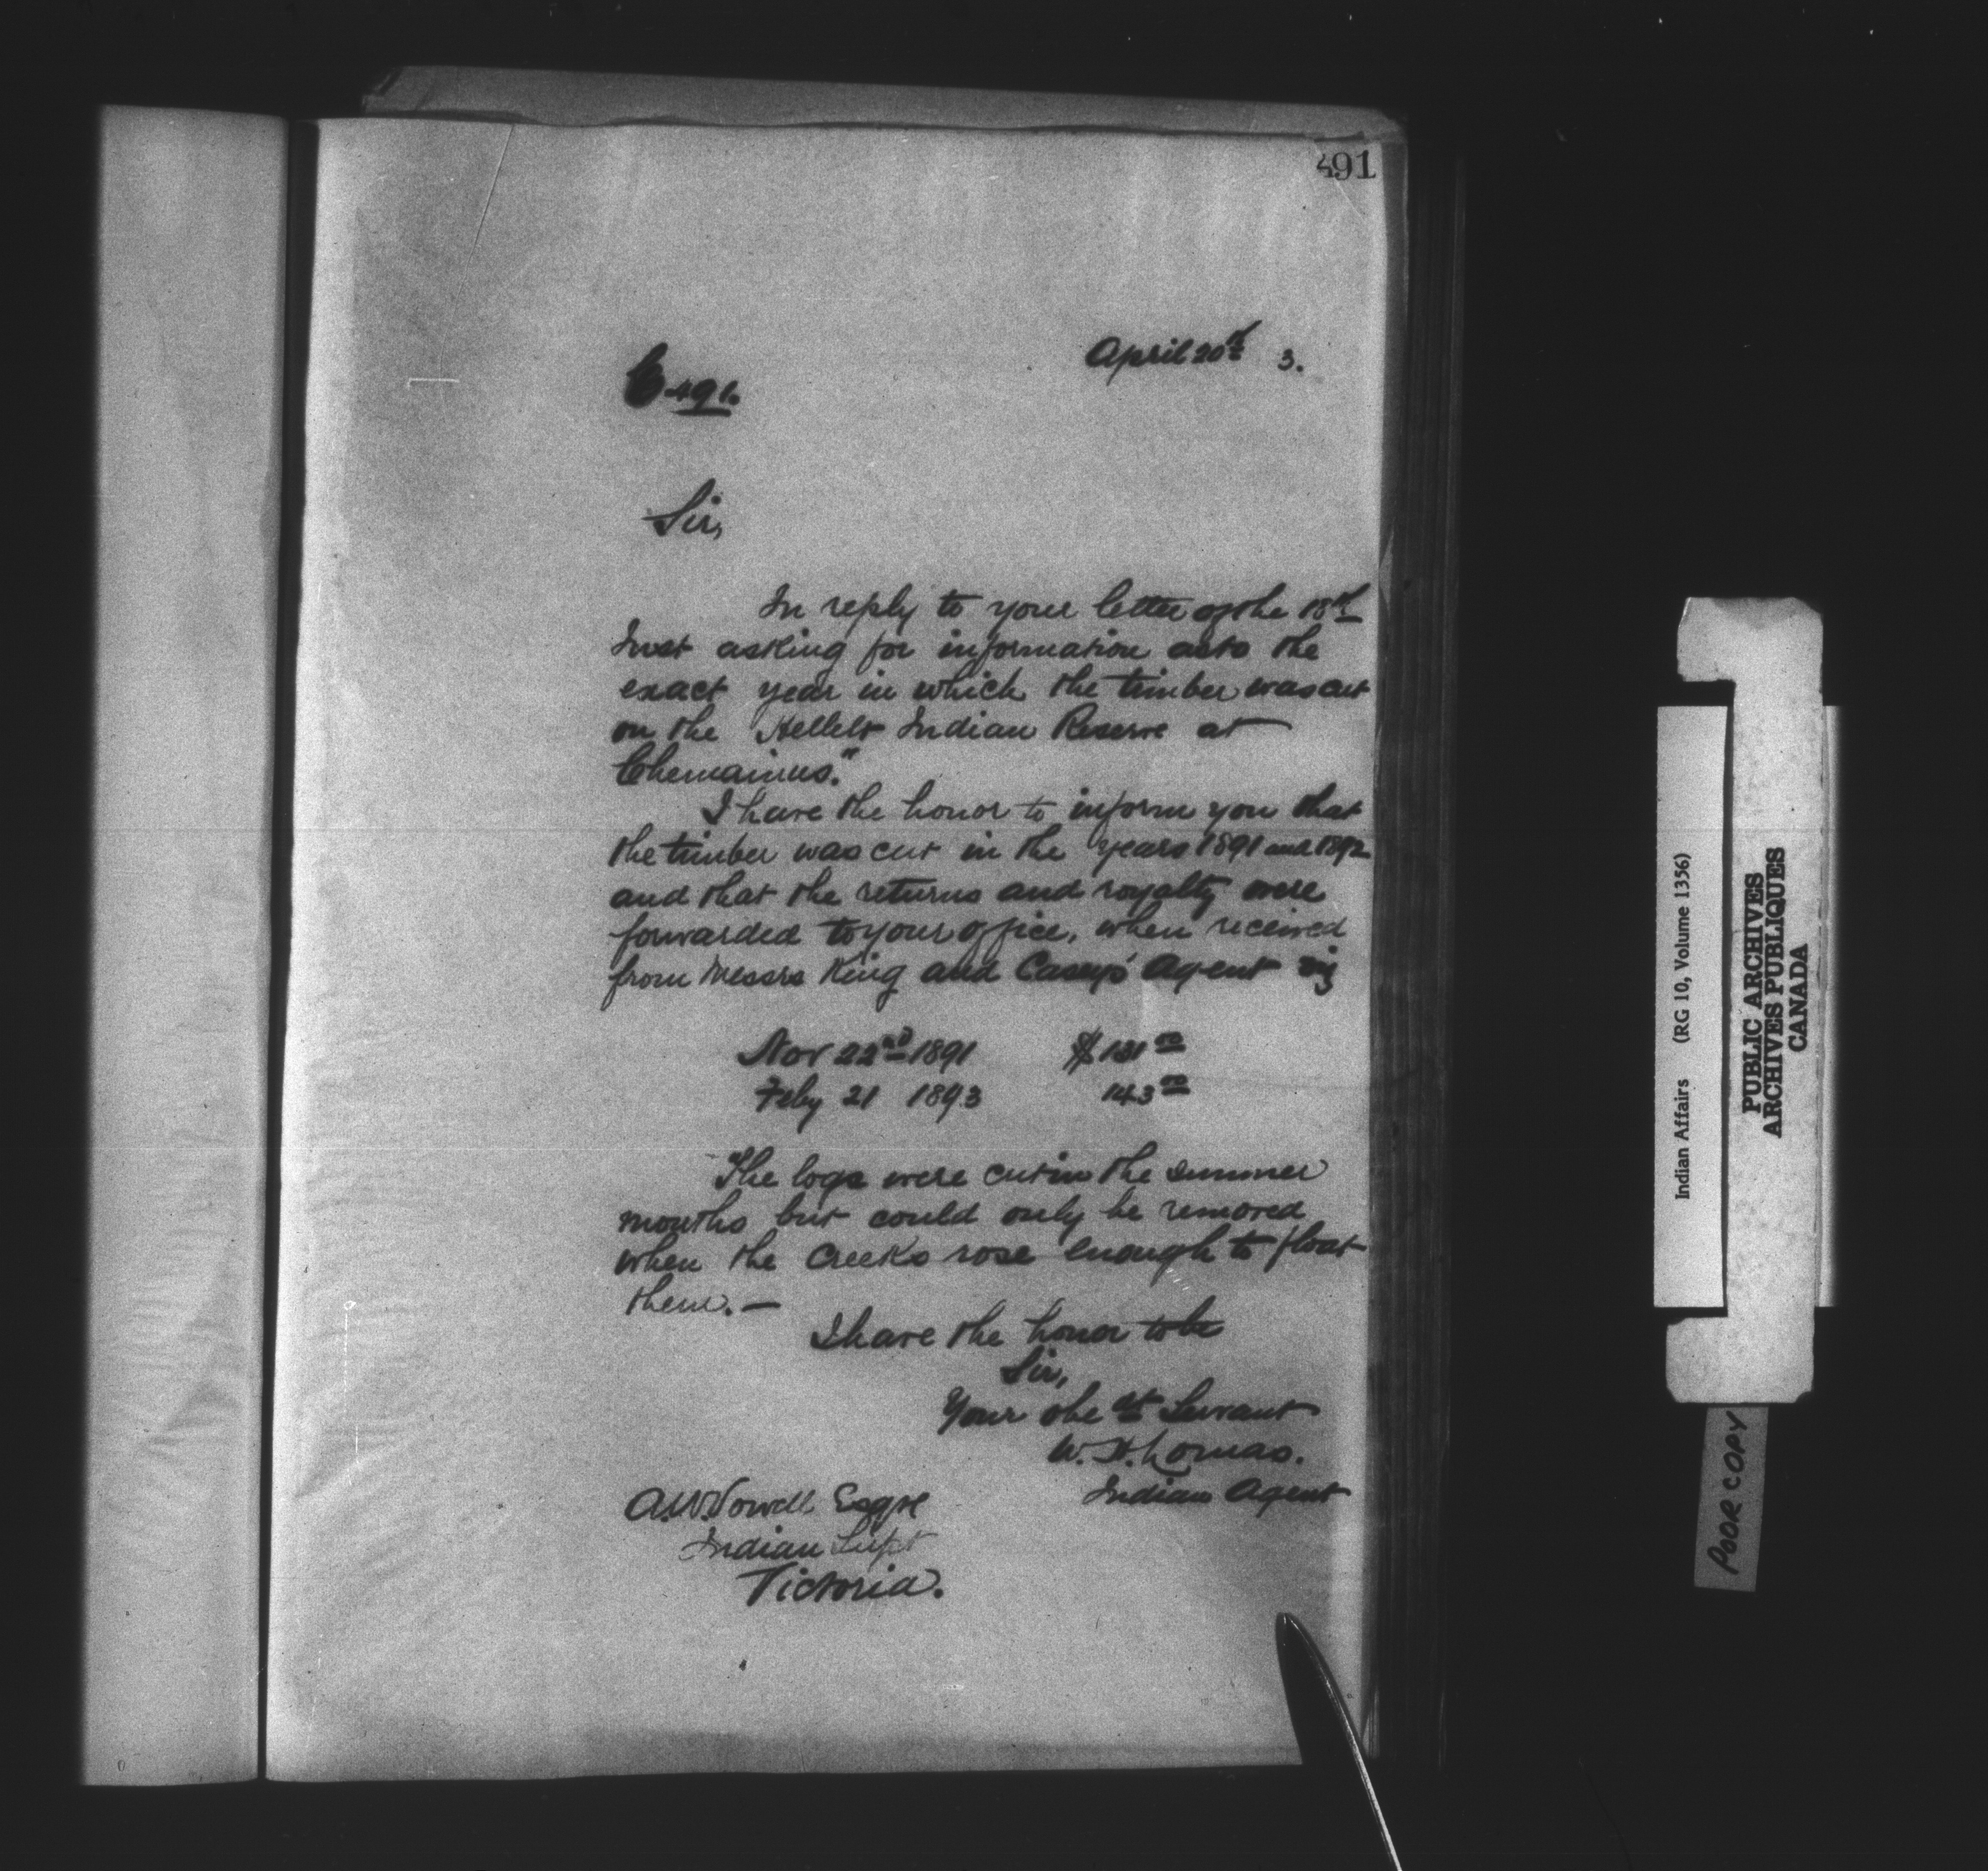 491
April 20th 3.
C 491.
Sir,
In reply to your letter of the 18th
Inst asking for information as to the
exact year in which the timber was cut
on the Hellelt Indian Reserve at
Chemainus."
I have the honor to inform you that
the timber was cut in the years 1891 and 1892
and that the returns and royalty were
forwarded to your office, when received
from Messrs King and Casey's Agent viz
Nov 22nd 1891 $131 00
Feby 21 1893 143 00
The logs were cut in the summer
months but could only be removed
when the Creeks rose enough to float
them. —
I have the honor to be
Sir,
Your obe dt Servant
W. H. Lomas.
Indian Agent
A.W. Vowell Esqre
Indian Supt
Victoria.
Indian Affairs (RG 10, Volume 1356)
PUBLIC ARCHIVES
ARCHIVES PUBLIQUES
CANADA
POOR COPY